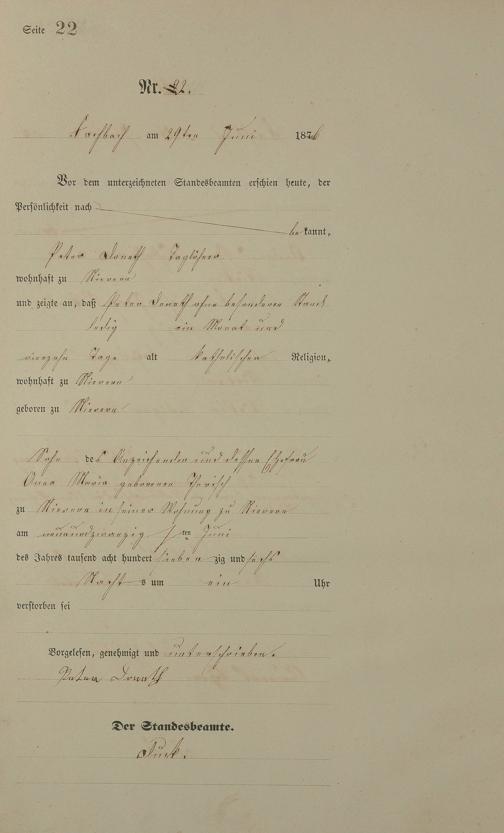 Seite 22
Nr. 22.
am 29ten Juni 1876
Vor dem unterzeichneten Standesbeamten erschien heute, der
Persönlichkeit nach
bekannt,
Peter Donath Taglöhner
wohnhaft zu Nievern
und zeigte an, daß Peter Donath ohne besonderen Stand
ledig ein Monat und
vierzehn Tage alt katholischer Religion,
wohnhaft zu Nievern
geboren zu Nievern
Sohn des Anzeigenden und dessen Ehefrau
Anna Maria geborenen
zu Nievern in seiner Wohnung zu Nievern
am neunundzwanzig sten Juni
des Jahres tausend acht hundert sieben zig und sechs
Nachts um ein Uhr
verstorben sei
Vorgelesen, genehmigt und unterschrieben.
Peter Donath
Der Standesbeamte.